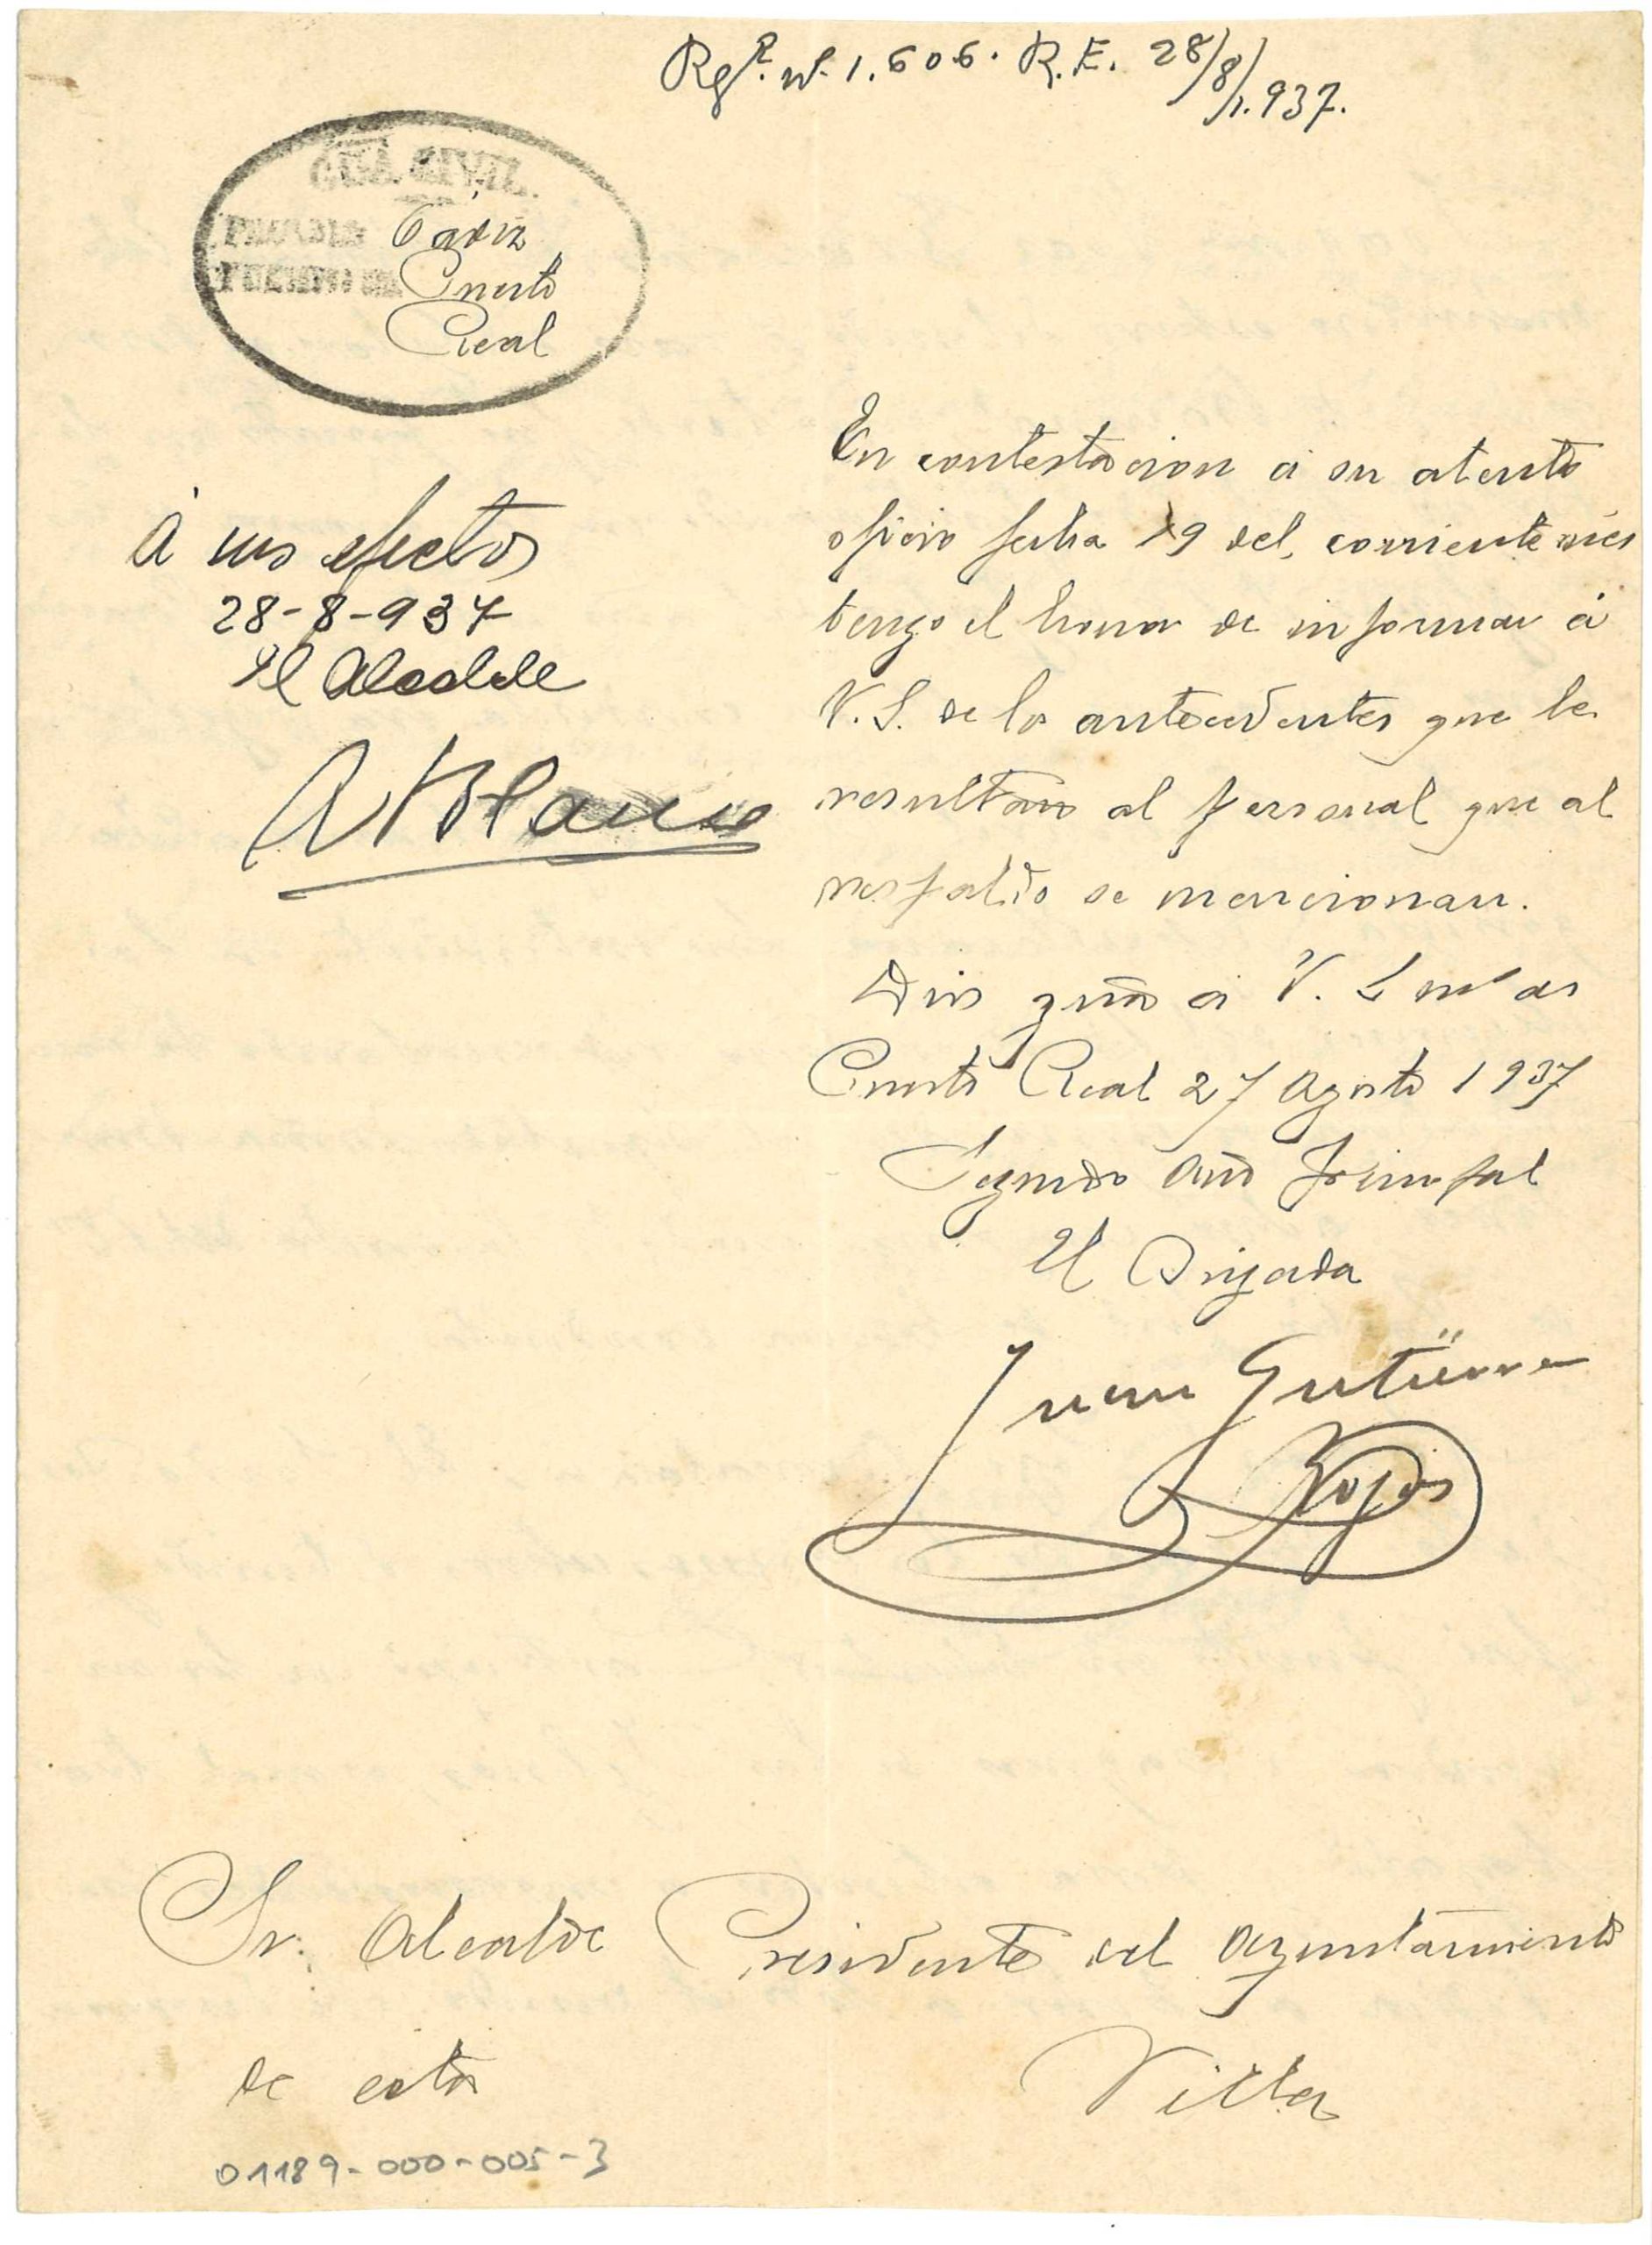 Rgº. nº. 1.606. R.E. 28/8/1.937.
GUA. CIVIL.
Cádiz
PUESTO DE Puerto
Real
A sus efectos
28-8-937
El Alcalde
En contestacion á su atento
oficio fecha 19 del corriente mes
tengo el honor de informar á
V.S. de los antecedentes que le
resultan al personal que al
respaldo se mencionan.
Dios gue á V. S. ms as
Puerto Real 27 Agosto 1937
Segundo Año Triunfal
El Brigada
Juan Gutierrez
Rojas
Sr. Alcalde Presidente del Ayuntamiento
de esta Villa
01189-000-005-3